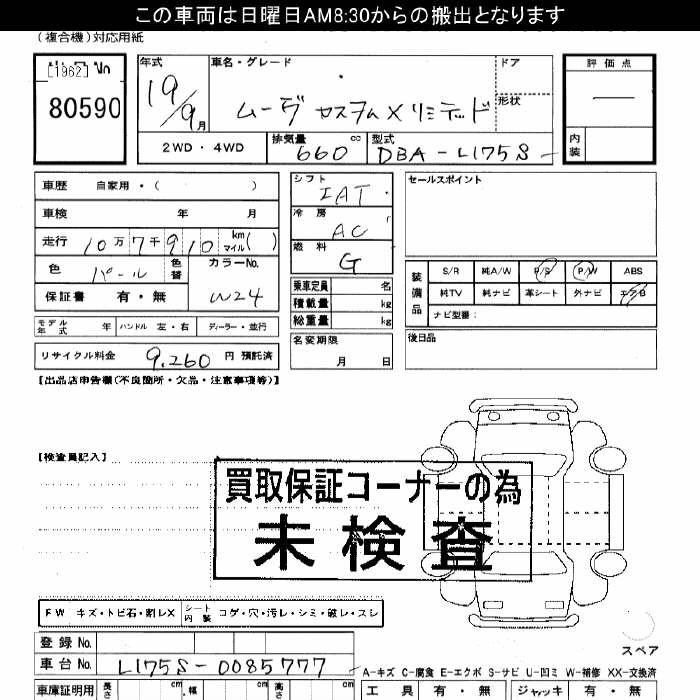 この車両は日曜日AM8:30からの搬出となります
(複合機)対応用紙
[1962] No
80590
年式
19/9月
車名・グレード
ムーヴ カスタムXリミテッド
ドア
形状
評価点
内装
2WD・4WD
排気量 660 cc
型式 DBA-L175S
車歴 自家用・( )
車検 年 月
走行 10万7千910 km マイル( )
色 パール 色替
カラーNo. W24
保証書 有・無
モデル年式 年 ハンドル 左・右 ディーラー・並行
リサイクル料金 9,260 円 預託済
シフト IAT
冷房 AC
燃料 G
乗車定員 名
積載量 kg
総重量 kg
名変期限 月 日
セールスポイント
装備品
S/R 純A/W P/S P/W ABS
純TV 純ナビ 革シート 外ナビ エアB
ナビ型番:
後日品
【出品店申告欄(不良箇所・欠品・注意事項等)】
【検査員記入】
買取保証コーナーの為
未検査
FW キズ・トビ石・割レX シート内装 コゲ・穴・汚レ・シミ・破レ・スレ
スペア
登録No.
車台No. L175S-0085777
A-キズ C-腐食 E-エクボ S-サビ U-凹ミ W-補修 XX-交換済
車庫証明用 長さ cm 幅 cm 高さ cm
工具 有・無 ジャッキ 有・無